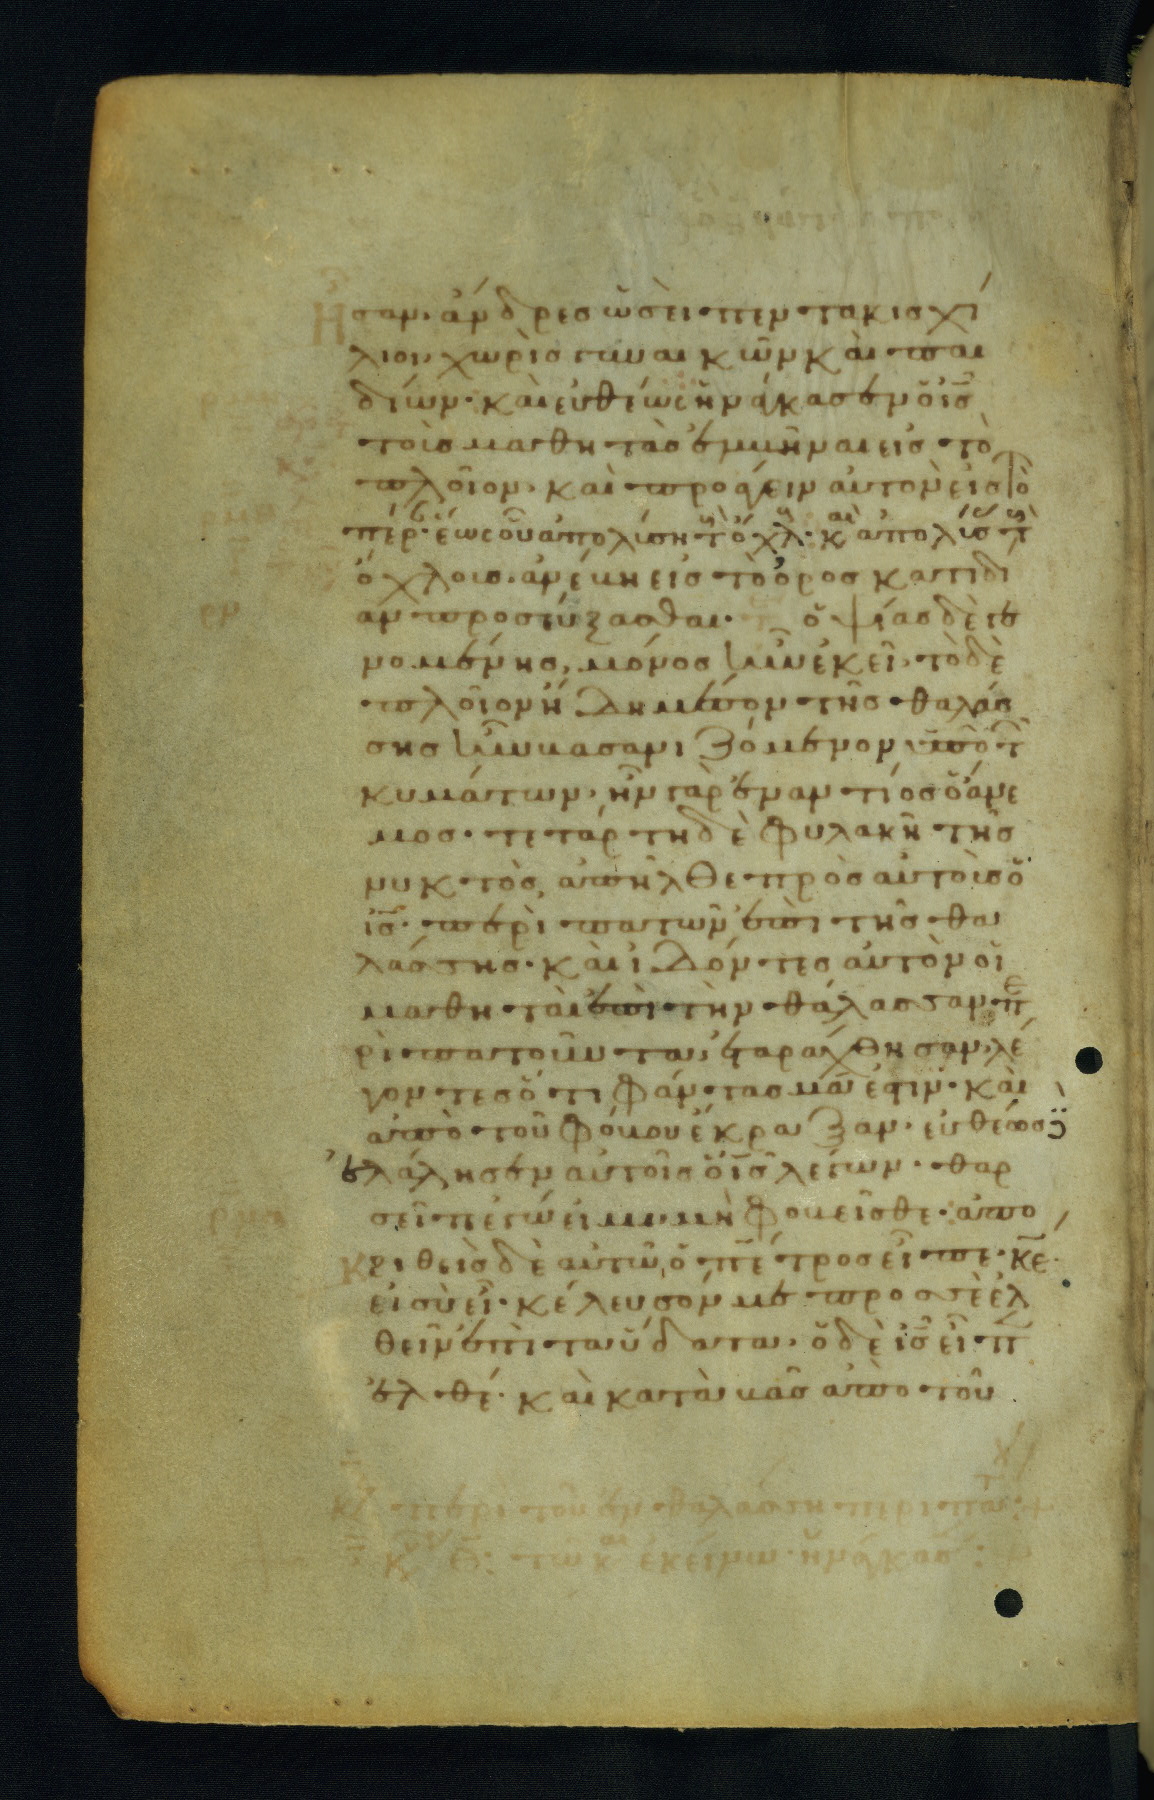 Ἦσαν ἄνδρες ὡσεὶ πεντακισχί
λιοι χωρὶς γυναικῶν καὶ παι
δίων· καὶ εὐθέως ἠνάγκασεν ὁ ις
τοὺς μαθητὰς ἐμβῆναι εἰς τὸ
πλοῖον· καὶ προάγειν αὐτὸν εἰς τὸ
πέρ· ἕως οὗ ἀπολύση τ ὄχλ· κ ἀπολύσ τ
ὄχλους· ἀνέβη εἰς τὸ ὄρος κατιδί
αν προσεύξασθαι· ὀψίας δὲ γε
νομένης, μόνος ἦν ἐκεῖ· τὸ δὲ
πλοῖον ἤδη μέσον τῆς θαλάσ
σης ἦν βασανιζόμενον ὑπὸ τ
κυμάτων· ἦν γὰρ ἐναντίος ὁ ἄνε
μος· τετάρτη δὲ φυλακῆ τῆς
νυκτὸς, ἀπῆλθε πρὸς αὐτοὺς ὁ
ις· περὶπατῶν ἐπὶ τῆς θα
λάσσης· καὶ ἰδόντες αὐτὸν οἱ
μαθηταὶ ἐπὶ τὴν θάλασσαν πε
ρὶπατοῦντα, ἐταράχθησαν λέ
γοντες ὅτι φάντασμά ἐστιν· καὶ
ἀπὸ τοῦ φόβου ἔκραξαν· εὐθέως
ἐλάλησεν αὐτοῖς ὁ ις λέγων· θαρ
σεῖτε ἐγώ εἰμι· μὴ φοβεῖσθε· ἀπο
κριθεὶς δὲ αὐτῶ ὁ πέτρος εἶπε· κε·
εἰ σὺ εἶ· κέλευσόν με προς σὲ ἐλ
θεῖν ἐπὶ τὰ ὕδατα· ὁ δὲ ις εἶπ
ἐλθέ· καὶ καταβὰς ἀπὸ τοῦ
περὶ τοῦ ἐν θαλάσση περιπάτ:
τῶ κ ἐκείνω· ἠνάγκασ: